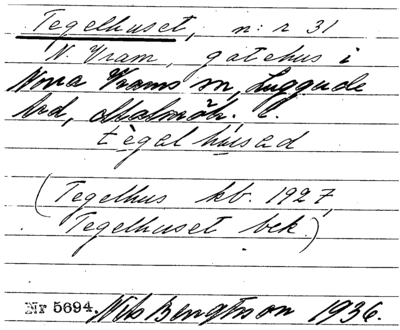 Tegelhuset, n:r 31
N. Vram, gatehus i
Norra Vrams sn, Luggude
hrd, Malmöh. l.
tègalhusəd
(Tegelhus kb. 1927,
Tegelhuset bek.)
Nr 5694. Nils Bengtsson 1936.